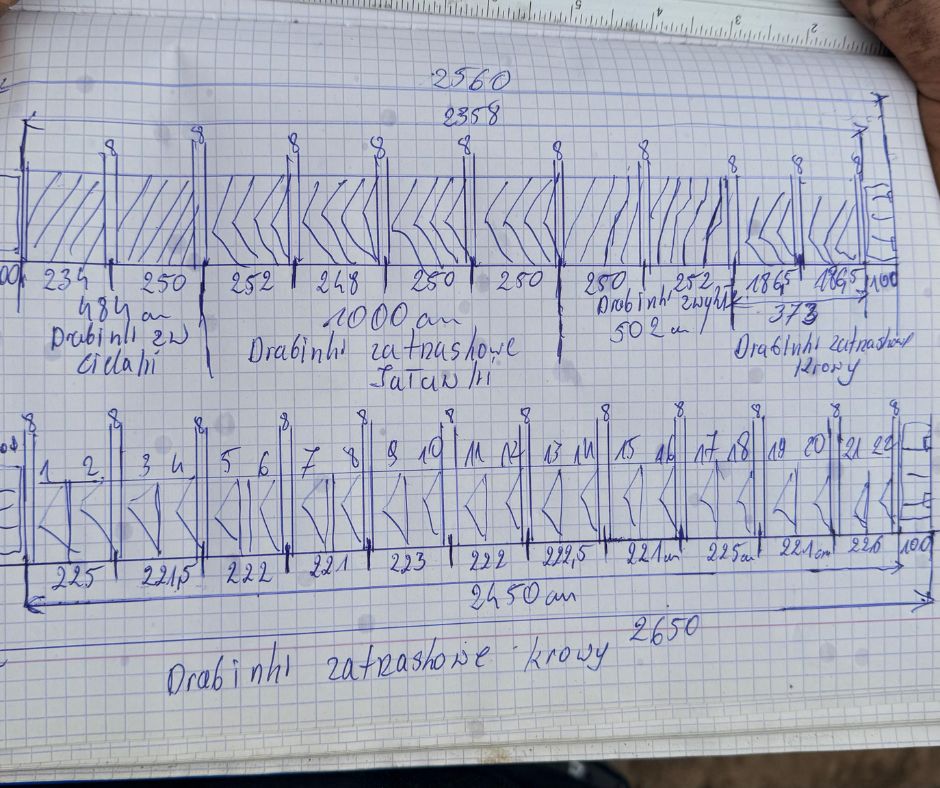 5 4 3 2
2560
2358
8 8 8 8 8 8 8 8 8 8
00 234 250 252 248 250 250 250 252 186,5 186,5 100
484 cm 1000 cm Drabinki zwykłe 373
Drabinki zw Drabinki zatrzaskowe 502 cm Drabinki zatrzaskowe
Cielaki Jałówki krowy
8 8 8 8 8 8 8 8 8 8 8 8
1 2 3 4 5 6 7 8 9 10 11 12 13 14 15 16 17 18 19 20 21 22
225 221,5 222 221 223 222 222,5 221 cm 225 cm 221 cm 226 100
2450 cm
2650
Drabinki zatrzaskowe krowy